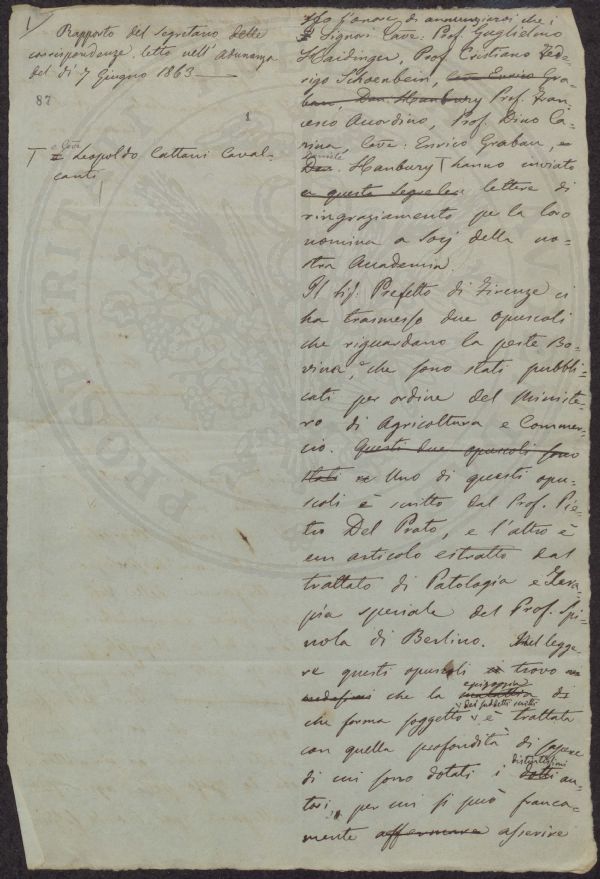 1/
Rapporto del Segretario delle
corrispondenze letto nell'adunanza
del dì 7 Giugno 1863
87
1
T e Cav.
Leopoldo Cattani Caval-
canti
Ho l'onore di annunziarvi che i
Signori Cav. Prof. Guglielmo
Haidinger, Prof. Cristiano Fede-
rigo Schoenbein, Cav. Enrico Gra-
bau, Dan. Hanbury Prof. Fran-
cesco Accordino, Prof. Dino Ca-
rina, Cav. Enrico Grabau, e
Daniele
Dan. Hanbury T hanno inviato
a questa Segreteria lettere di
ringraziamento per la loro
nomina a Socj della no-
stra Accademia.
Il Sig. Prefetto di Firenze ci
ha trasmesso due opuscoli
che riguardano la peste Bo-
vina, che sono stati pubbli-
cati per ordine del Ministe-
ro di Agricoltura e Commer-
cio. Questi due opuscoli sono
stati Uno di questi opu-
scoli è scritto dal Prof. Pie-
tro Del Prato, e l'altro è
un articolo estratto dal
trattato di Patologia e Tera-
pia speciale del Prof. Spi-
nola di Berlino. Nel legge-
re questi opuscoli trovo
che la
epizoozia
malattia di
dei suddetti scritti
che forma soggetto è trattata
con quella profondità di sapere
distintissimi
di cui sono dotati i dotti au-
tori, per cui si può franca-
mente affermare asserire